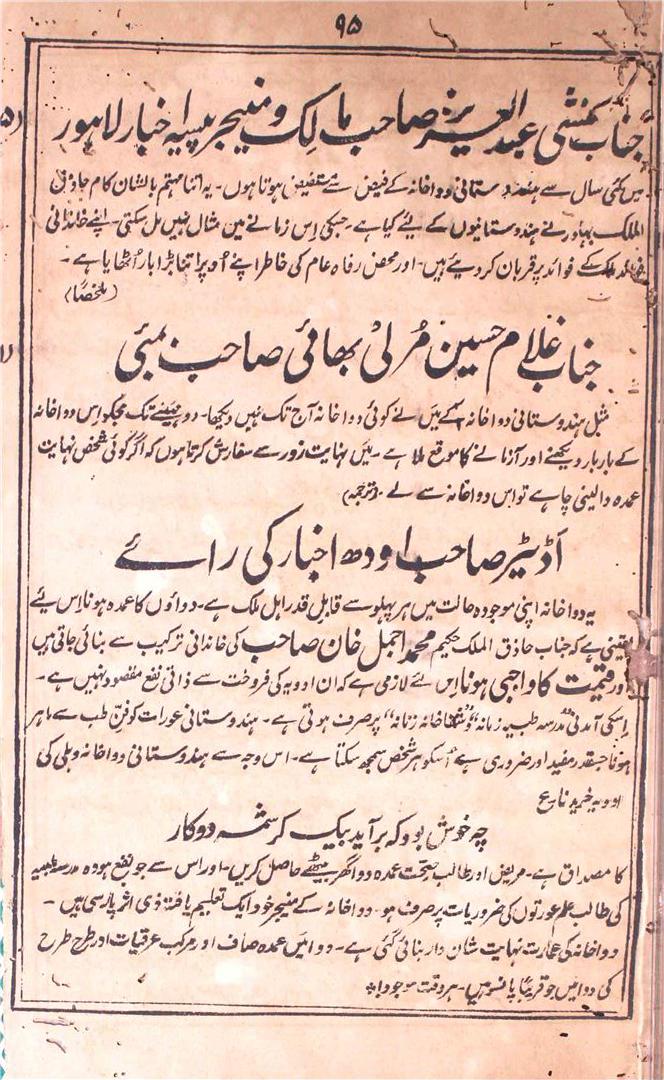 ۹۵
جناب منشی عبدالعزیز صاحب مالک و منیجر پیسہ اخبار لاہور
میں کئی سال سے ہندوستانی دواخانہ کے فیض سے مستفیض ہوتا ہوں۔ یہ اتنا مہتم بالشان کام حاذق
الملک بہادر نے ہندوستانیوں کے لئے کیا ہے۔ جسکی اِس زمانے مین مثال نہیں مل سکتی۔ اپنے خاندانی
فوائد ملک کے فوائد پر قربان کر دیئے ہیں۔ اور محض رفاہ عام کی خاطر اپنے اُوپر اتنا بڑا بار اُٹھایا ہے۔
(ملخصاً)
جناب غلام حسین مُرلی بھائی صاحب بمبئی
مثل ہندوستانی دواخانہ کے میں نے کوئی دواخانہ آج تک نہیں دیکھا۔ دو مہینے تک مجکو اِس دواخانہ
کے بار بار دیکھنے اور آزمانے کا موقع ملا ہے۔ میں نہایت زور سے سفارش کرتا ہوں کہ اگر کوئی شخص نہایت
عمدہ دوا لینی چاہے تو اِس دواخانہ سے لے۔ (ترجمہ)
اڈیٹر صاحب اودھ اخبار کی رائے
یہ دواخانہ اپنی موجودہ حالت میں ہر پہلو سے قابل قدر اہل ملک ہے۔ دواؤں کا عمدہ ہونا اِس لئے
یقینی ہے کہ جناب حاذق الملک حکیم محمد اجمل خان صاحب کی خاندانی ترکیب سے بنائی جاتی ہیں
اور قیمت کا واجبی ہونا اِس لئے لازمی ہے کہ ان ادویہ کی فروخت سے ذاتی نفع مقصود نہیں ہے۔
اِسکی آمدنی "مدرسہ طبیہ زنانہ" و "شفاخانہ زنانہ" پر صرف ہوتی ہے۔ ہندوستانی عورات کو فنِ طب سے ماہر
ہونا جسقدر مفید اور ضروری ہے اُسکو ہر شخص سمجھ سکتا ہے۔ اس وجہ سے ہندوستانی دواخانہ دہلی کی
ادویہ خریدنا ع
چہ خوش بود کہ برآید بیک کرشمہ دو کار
کا مصداق ہے۔ مریض اور طالب صحت عمدہ دوا گھر بیٹھے حاصل کریں۔ اور اس سے جو نفع ہو وہ مدرسہ طبیہ
کی طالب علم عورتوں کی ضروریات پر صرف ہو۔ دواخانہ کے منیجر خود ایک تعلیم یافتہ ذی اثر پارسی ہیں۔
دواخانہ کی عمارت نہایت شاندار بنائی گئی ہے۔ دوائیں عمدہ صاف اور مرکب عرقیات اور طرح طرح
کی دوائیں جو قریباً پانسو ہیں۔ ہر وقت موجود